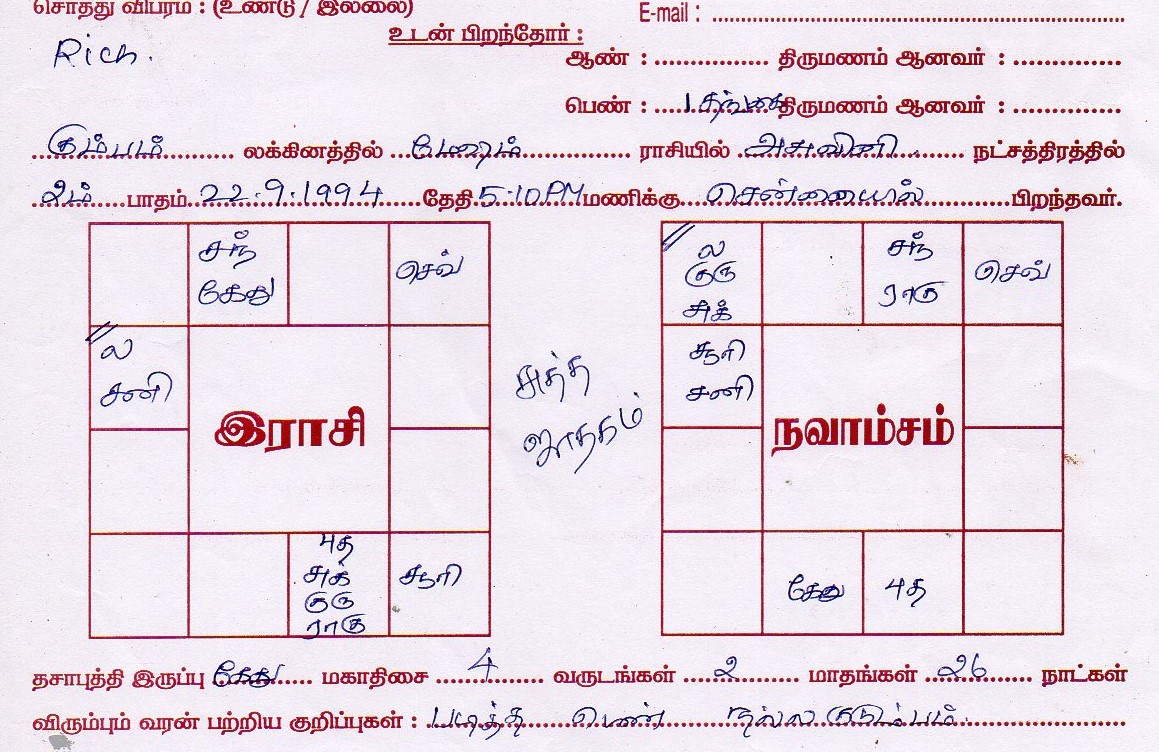 சொத்து விபரம் : (உண்டு / இல்லை)
E-mail : ................
Rich.
உடன் பிறந்தோர் :
ஆண் : ............... திருமணம் ஆனவர் : ..............
பெண் : ....1 தங்கை திருமணம் ஆனவர் : ..............
கும்பம் லக்கினத்தில் மேஷம் ராசியில் அசுவினி நட்சத்திரத்தில்
2ம் பாதம் 22.9.1994 தேதி 5.10PM மணிக்கு சென்னையில் பிறந்தவர்.
சந்
கேது
செவ்
ல
சனி
இராசி
புத
சுக்
குரு
ராகு
சூரி
சுத்த
ஜாதகம்
ல
குரு
சுக்
சந்
ராகு
செவ்
சூரி
சனி
நவாம்சம்
கேது
புத
தசாபுத்தி இருப்பு கேது மகாதிசை 4 வருடங்கள் 2 மாதங்கள் 26 நாட்கள்
விரும்பும் வரன் பற்றிய குறிப்புகள் : படித்த பெண் நல்ல குடும்பம்.